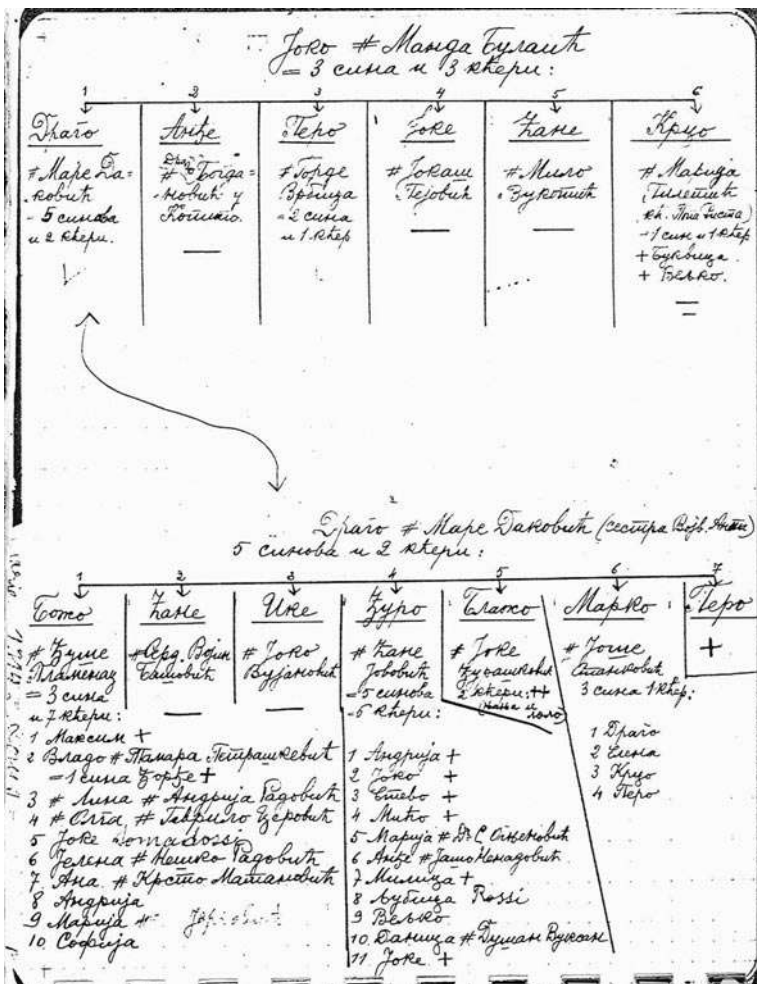 Јоко # Манда Булаић
= 3 сина и 3 кћери:
1 2 3 4 5 6
Драго
# Маре Да=
ковић
- 5 синова
и 2 кћери.
Анђе
# Богда=
новић у
Перо
# Ђорђе
Врбица
- 2 сина
и 1 кћер
Јоке
# Јокаш
Пејовић
Ђане
# Мило
Вукотић
Крцо
# Марија
- 1 син и 1 кћер
+ Буквица
+ Вељко.
Драго # Маре Даковић (сестра Војв. Анта)
5 синова и 2 кћери:
1 2 3 4 5 6 7
Божо
# Ђуше
Пламенац
= 3 сина
и 7 кћери:
1 Максим +
2 Владо # Тамара Петрашкевић
= 1 сина Ђорђе +
3 # Лина # Андрија Радовић
4 # Олга # Гаврило Церовић
5 Јоке Tomadossi
6 Јелена # Нешко Радовић
7 Ана # Крсто Матановић
8 Андрија
9 Марија #
10 Софија
Ђане
# Серд. Војин
Башовић
Ике
# Јоко
Вујановић
Ђуро
# Ђане
Јововић
- 5 синова
- 6 кћери:
1 Андрија +
2 Јоко +
3 Стево +
4 Мићо +
5 Марија # Dr С. Огњеновић
6 Анђе # Јашо Ненадовић
7 Милица +
8 Љубица Rossi
9 Вељко
10 Даница # Душан Вуксан
11 Јоке +
Блажо
# Јоке
2 кћери: ++
Марко
# Јоше
Станковић
3 сина 1 кћер:
1 Драго
2 Елена
3 Крцо
4 Перо
Перо
+